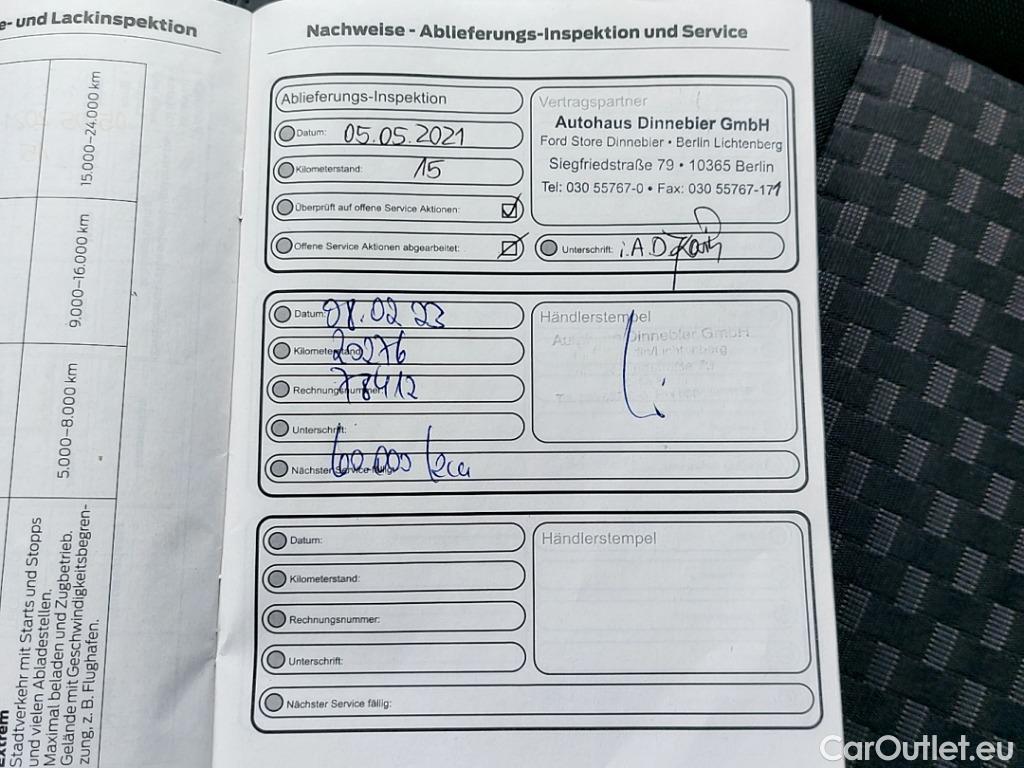 e- und Lackinspektion
15.000–24.000 km
9.000–16.000 km
5.000–8.000 km
Extrem
Stadtverkehr mit Starts und Stopps
und vielen Abladestellen.
Maximal beladen und Zugbetrieb.
Gelände mit Geschwindigkeitsbegren-
zung, z. B. Flughafen.
Nachweise - Ablieferungs-Inspektion und Service
Ablieferungs-Inspektion
Datum: 05.05.2021
Kilometerstand: 15
Überprüft auf offene Service Aktionen:
Offene Service Aktionen abgearbeitet:
Vertragspartner
Autohaus Dinnebier GmbH
Ford Store Dinnebier • Berlin Lichtenberg
Siegfriedstraße 79 • 10365 Berlin
Tel: 030 55767-0 • Fax: 030 55767-171
Unterschrift: i.A.
Datum: 08.02.23
Kilometerstand: 20276
Rechnungsnummer: 78412
Unterschrift:
Nächster Service fällig:
Händlerstempel
Dinnebier GmbH
Datum:
Kilometerstand:
Rechnungsnummer:
Unterschrift:
Nächster Service fällig:
Händlerstempel
CarOutlet.eu